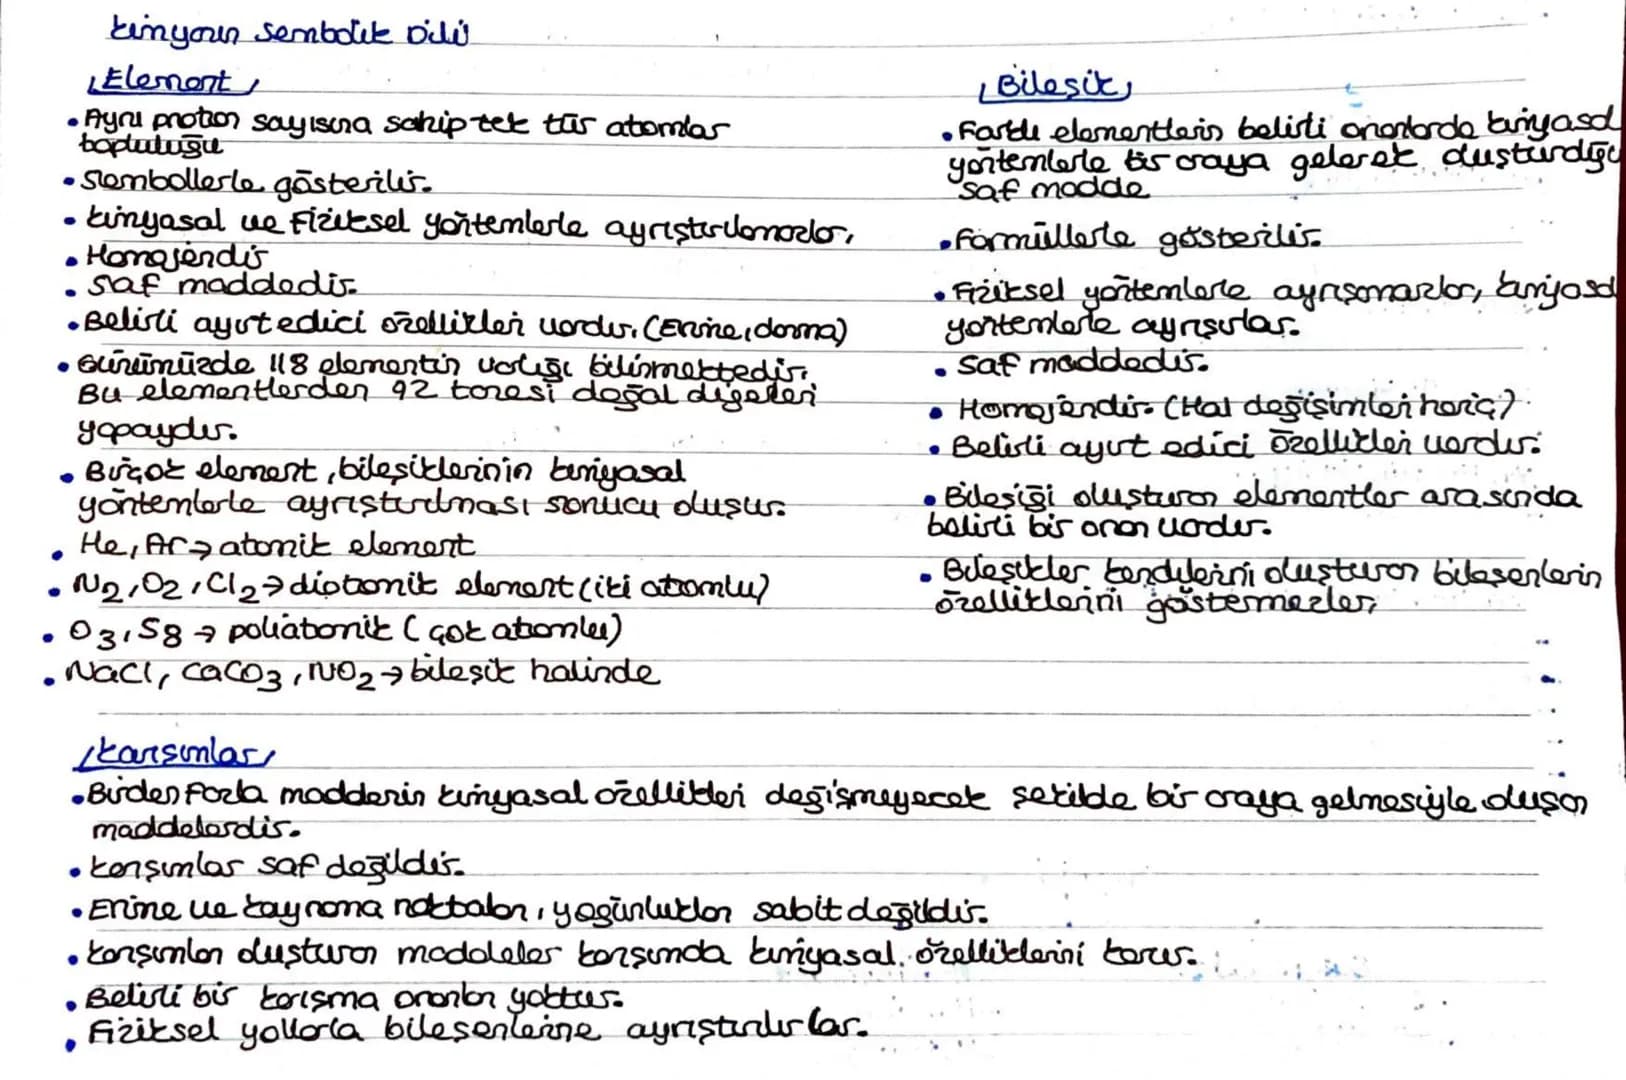 Kimyanın Sembolik Dili
Element
• Aynı proton sayısına sahip tek tür atomlar
topluluğu
• Sembollerle gösterilir.
• Kimyasal ve Fiziksel yöntemlerle ayrıştırılamazlar.
• Homojendir
• Saf maddedir.
• Belirli ayırt edici özellikleri vardır. (Erime, donma)
• Günümüzde 118 elementin varlığı bilinmektedir.
Bu elementlerden 92 tanesi doğal diğerleri
yapaydır.
• Birçok element, bileşiklerinin kimyasal
yöntemlerle ayrıştırılması sonucu oluşur.
• He, Ar → atomik element
• N2, O2, Cl2 → diatomik element (iki atomlu)
• O3, S8 → poliatomik (çok atomlu)
• NaCl, CaCO3, NO2 → bileşik halinde
Bileşik
• Farklı elementlerin belirli oranlarda kimyasal
yöntemlerle bir araya gelerek oluşturdığu
saf madde
• Formüllerle gösterilir.
• Fiziksel yöntemlerle ayrışamazlar, kimyasal
yöntemlerle ayrışırlar.
• Saf maddedir.
• Homojendir. (Hal değişimleri hariç)
• Belirli ayırt edici özellikleri vardır.
• Bileşiği oluşturan elementler arasında
belirli bir oran vardır.
• Bileşikler kendilerini oluşturan bileşenlerin
özelliklerini göstermezler.
Karışımlar
• Birden Fazla maddenin kimyasal özellikleri değişmeyecek şekilde bir araya gelmesiyle oluşan
maddelerdir.
• Karışımlar saf değildir.
• Erime ve kaynama noktaları, yoğunlukları sabit değildir.
• Karışımları oluşturan maddeler karışımda kimyasal özelliklerini korur.
• Belirli bir karışma oranları yoktur.
• Fiziksel yollarla bileşenlerine ayrıştırılırlar.